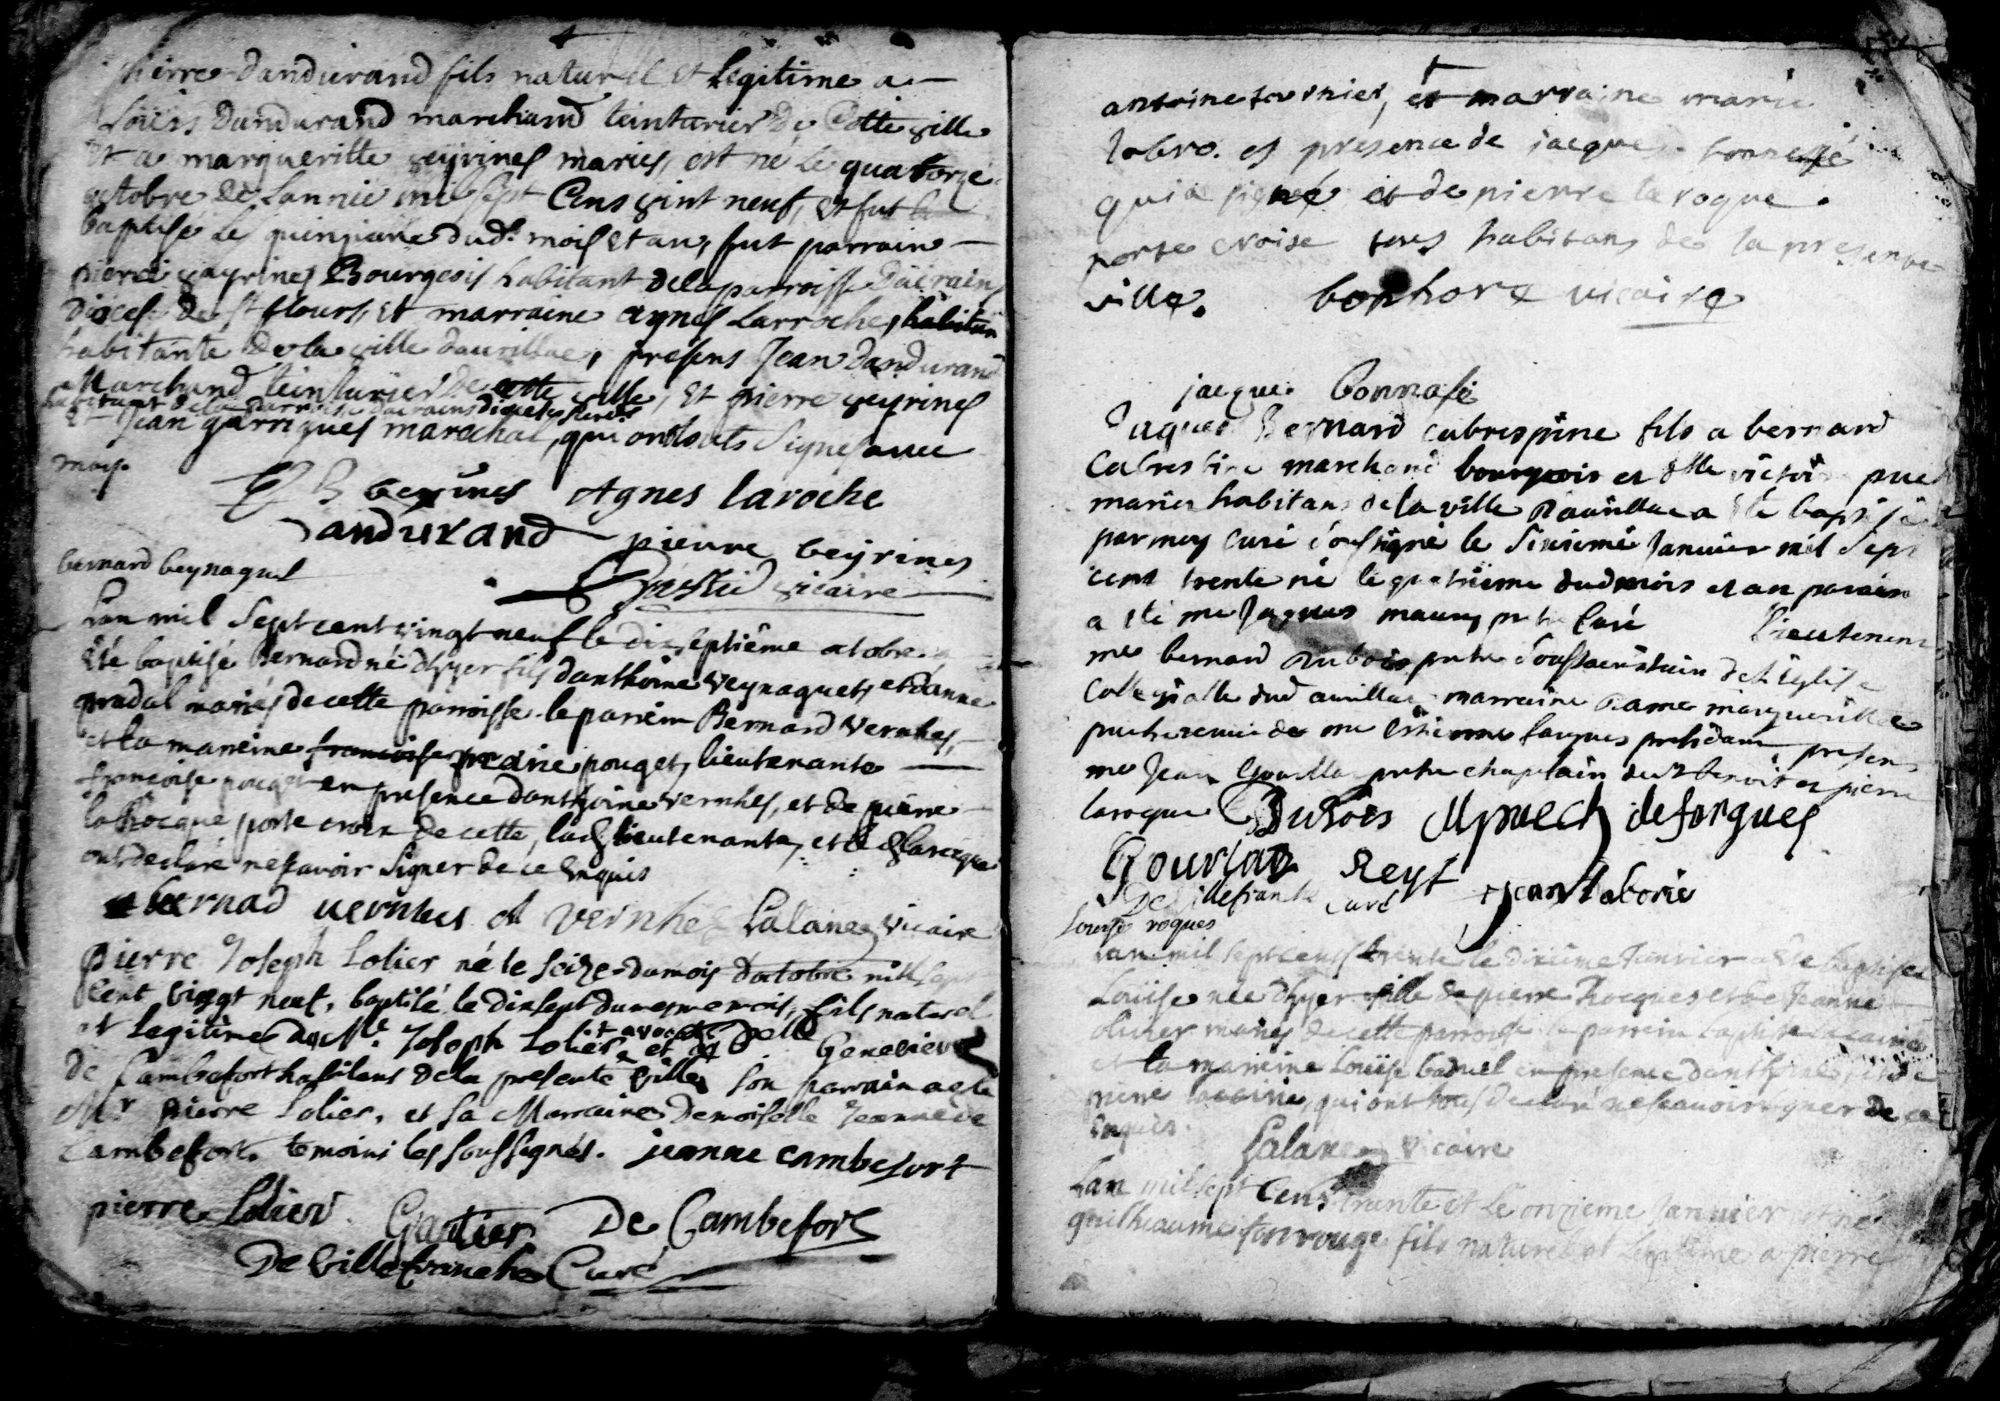 pierre dandurand fils naturel et legitime a
Loüis Dandurand marchand teinturier de Cette ville
et a margueritte veyrines mariés, est né le quatorze
octobre de Lannée mil sept Cens vint neuf, et fut
baptisé le quinziéme dud. mois et an, fut parrain
pierre veyrines Bourgeois habitant de la parroisse
Diocese de st flours, et marraine agnes Larroche, habitan
habitante de la ville daurillac, presens Jean Dandurand
Marchand teinturier de cette ville, et pierre veyrines
habitant de la parroisse
et Jean garrigues marechal, qui ont touts signés avec
moy.
veyrines Agnes laroche
Dandurand pierre veyrines
vicaire
bernard veynaguet
Lan mil Sept cent vingt neuf le dix septiême octobre a
été baptisé Bernard né d'hyer fils danthoine veynaguet, et d'anne
pradal mariés de cette parroisse. le parrein Bernard vernhes,
et la marreine francoise pouget, lieutenante
francoise pouget en presence danthoine vernhes, et de pierre
laRocque porte croix de cette, lad. lieutenante, et led. larocque
ont declaré ne sçavoir signer de ce enquis
bernad vernhes vernhes Lalane vicaire
pierre Joseph Lolier né le seize du mois doctobre mil sept
cent vingt neuf, baptisé le dix sept du mesme mois, fils naturel
et legitime de Me. Joseph Lolier et avocat et de Delle Genevieve
de Cambefort habitens de la presente ville son parrain a eté
Mr pierre Lolier, et sa Marraine Demoiselle Jeanne de
Cambefort. temoins les soussignés. jeanne cambefort
pierre Lolier Gartier De Cambefort
De Villefranche Curé
antoine fournier, et marraine marie
labro. es presence de jacques bonnefé
qui a signé et de pierre la roque
porte croise tous habitans de la presente
ville. bonhore vicaire
jacque bonnafé
Jaques Bernard cabrespine fils a bernard
Cabrespine marchand bourgois et dlle victoire
mariés habitans de la ville daurillac a été baptisé
par moy curé soussigné le sixieme Janvier mil sept
cent trente né le quatrieme dud mois et an parrain
a été me Jaques maury ptre curé Lieutenent
me bernard dubois ptre soussacristain de l'Eglise
Collegialle dud aurillac marraine dame margueritte
de me Etienne fargues presens
me Jean ptre chaplain de st benoit et pierre
laroque Dubois Mpuech defargues
Gourlat Reyt
De Villefranche curé jean Laborie
Louise roques
Lan mil sept cens trente le dixiéme Janvier a été baptisée
Loüise née d'hyer fille de pierre Rocques et de Jeanne
mariés de cette parroisse le parrein baptiste
et la marreine Loüise baduel en presence
pierre qui ont tous declaré ne sçavoir signer de ce
enquis.
Lalane vicaire
Lan mil sept Cens trante et Le onzieme Janvier est né
guilheaume fonrouge fils naturel et legitime a pierre